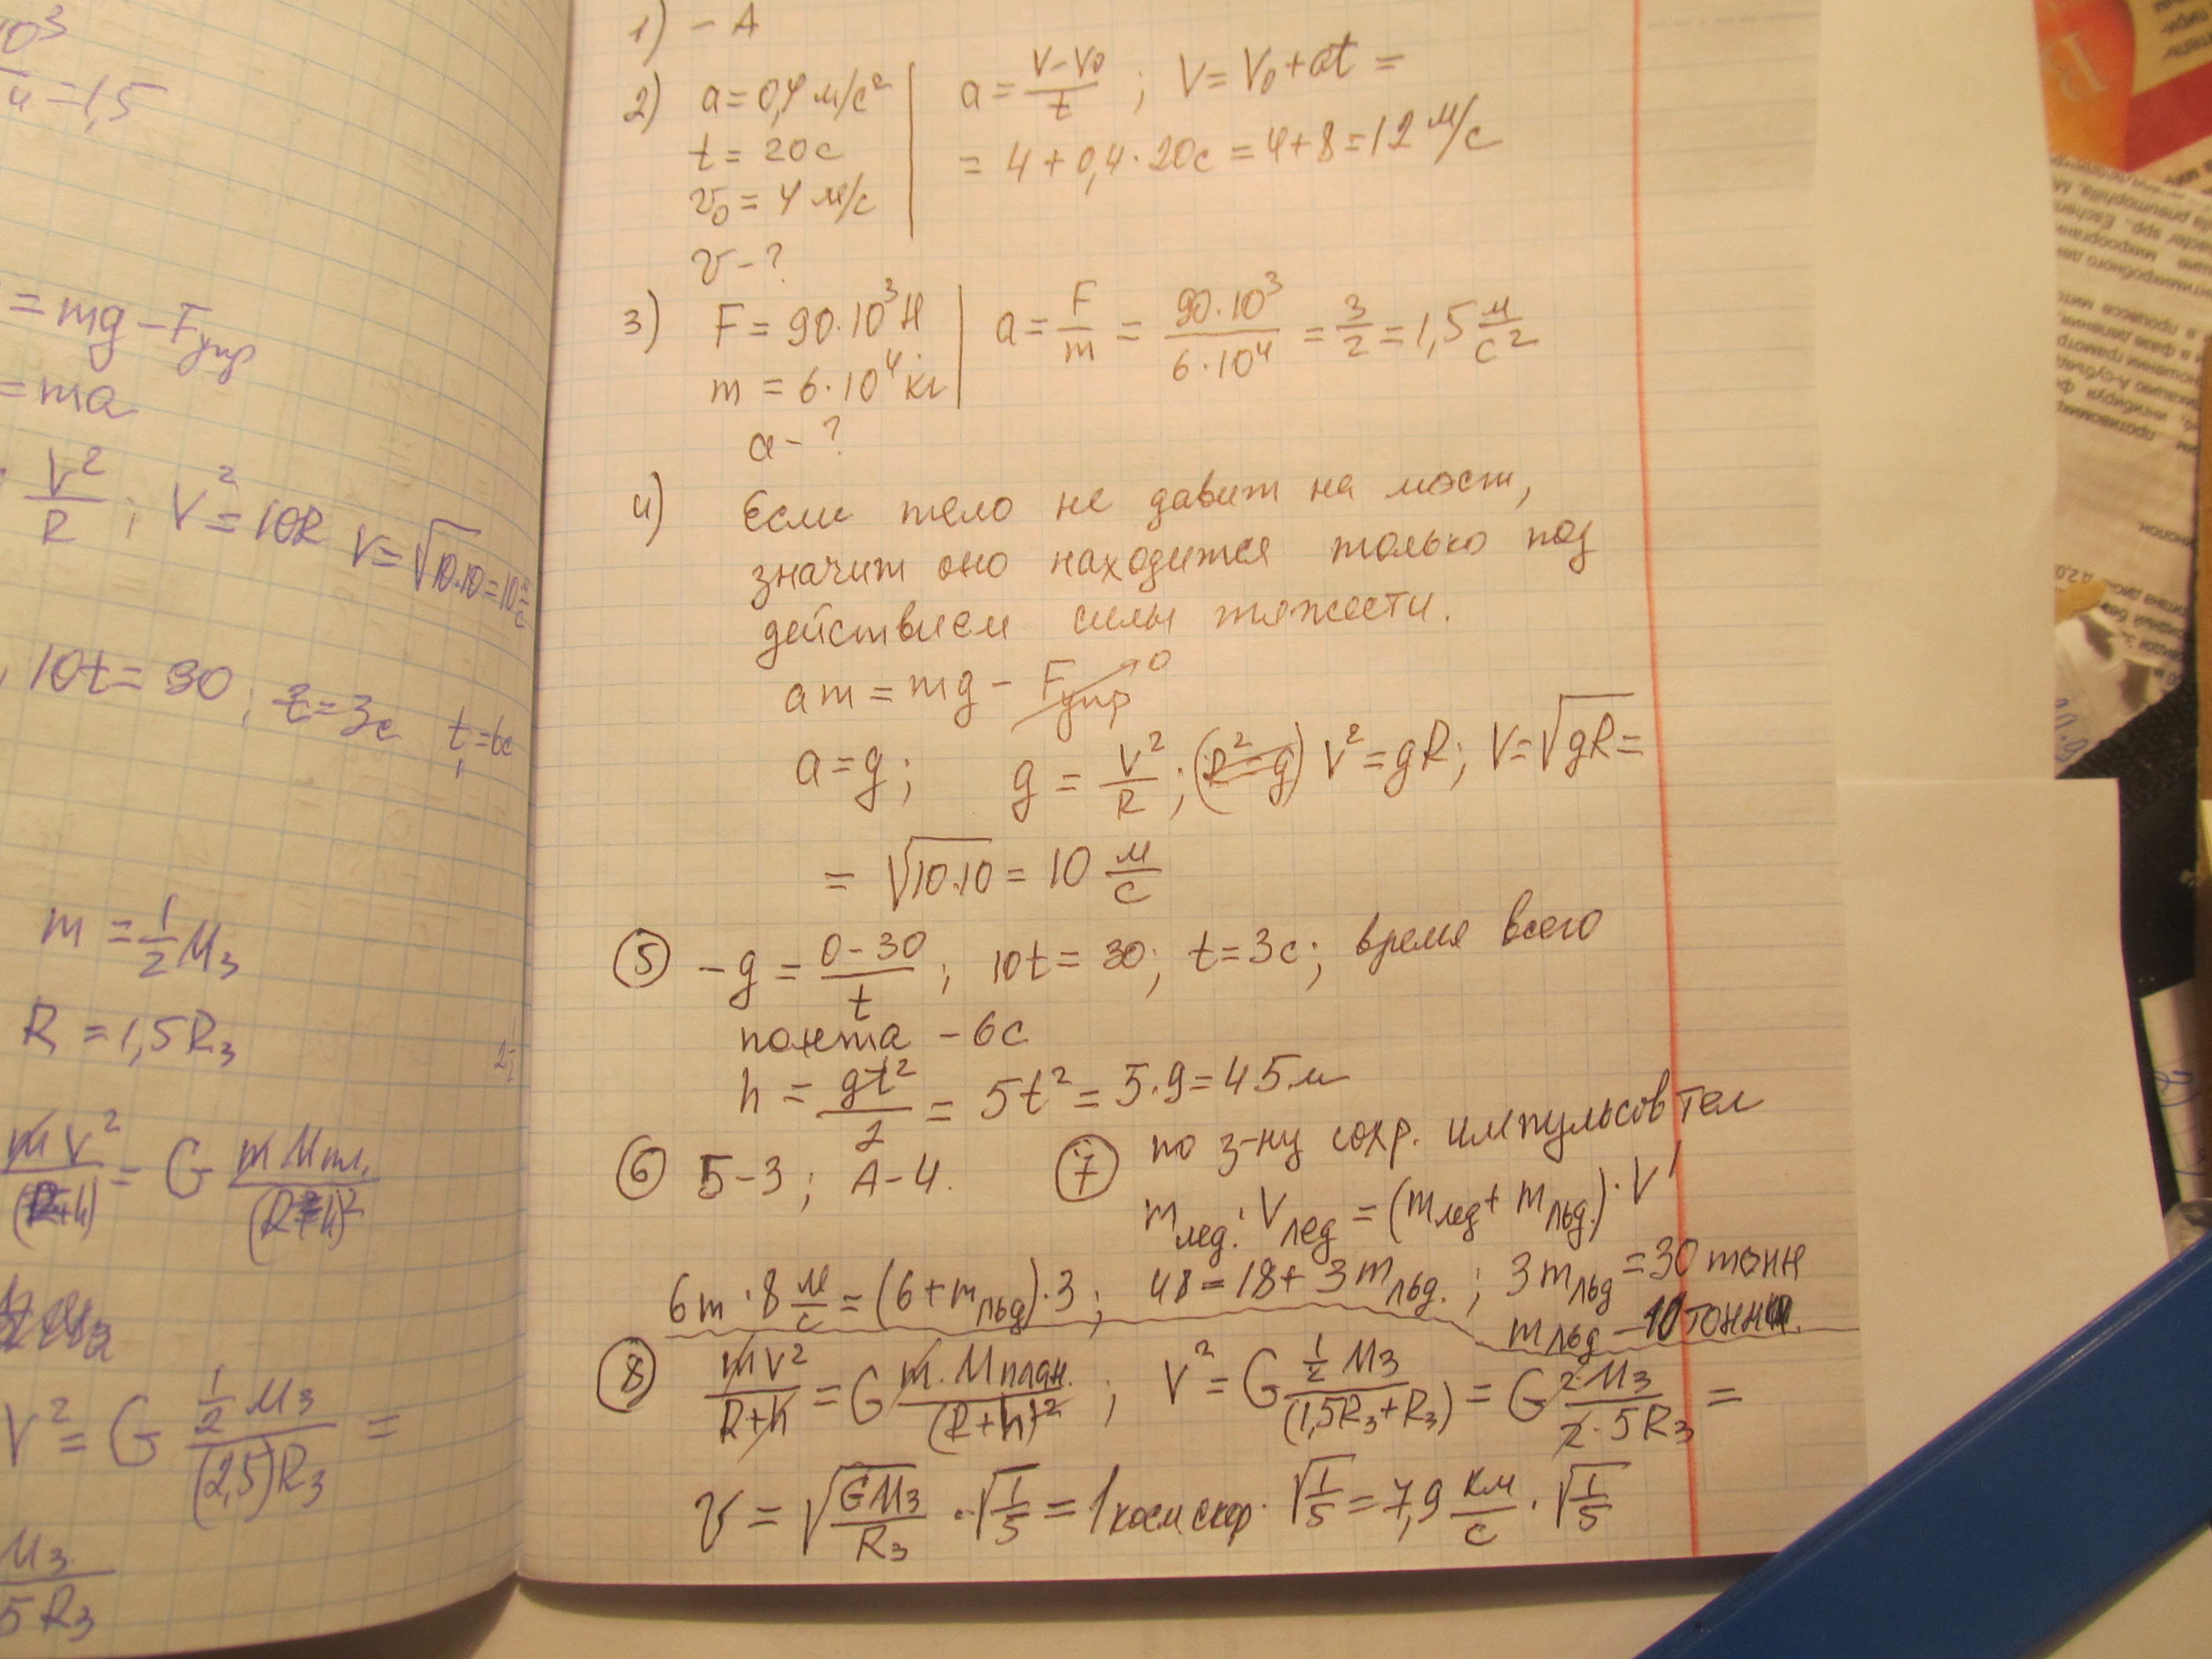 0³
/4 = 1,5
= mg − Fупр
= ma
V²/R ; V² = 10R V = √10·10 = 10 м/с
10t = 30 ; t = 3с t₁ = 6с
m = 1/2 Mз
R = 1,5Rз
mV²/(R+h) = G mMпл./(R+h)²
V² = G 1/2 Mз/(2,5)Rз =
Mз/5Rз
1) − А
2) a = 0,4 м/с² | a = (V−V₀)/t ; V = V₀ + at =
t = 20с = 4 + 0,4 · 20с = 4 + 8 = 12 м/с
v₀ = 4 м/с
v − ?
3) F = 90·10³ Н | a = F/m = 90·10³/6·10⁴ = 3/2 = 1,5 м/с²
m = 6·10⁴ кг
a − ?
4) Если тело не давит на мост,
значит оно находится только под
действием силы тяжести.
am = mg − Fупр → 0
a = g ; g = V²/R ; (R² = g) V² = gR ; V = √gR =
= √10·10 = 10 м/с
5 −g = (0−30)/t ; 10t = 30 ; t = 3с ; время всего
полета − 6с
h = gt²/2 = 5t² = 5·9 = 45м
6 Б−3 ; А−4.
7 по з-ну сохр. импульсов тел
mлед. · Vлед = (mлед + mльд.) · V'
6т · 8 м/с = (6 + mльд) · 3 ; 48 = 18 + 3mльд. ; 3mльд = 30 тонн
mльд − 10 тонн.
8 mV²/(R+h) = G m·Mплан./(R+h)² ; V² = G 1/2 Mз/(1,5Rз+Rз) = G 2·Mз/2·5Rз =
v = √GMз/Rз · √1/5 = 1 косм скор · √1/5 = 7,9 км/с · √1/5